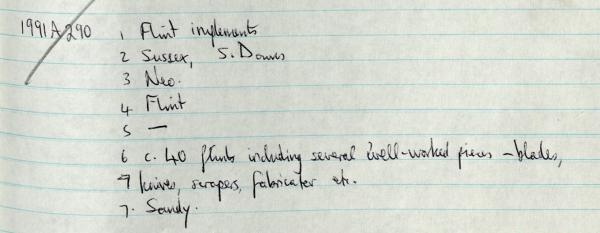 1991A290 1 Flint implements
2 Sussex, S. Downs
3 Neo.
4 Flint
5 —
6 c. 40 flints including several well-worked pieces – blades,
7 knives, scrapers, fabricator etc.
7. Sandy.